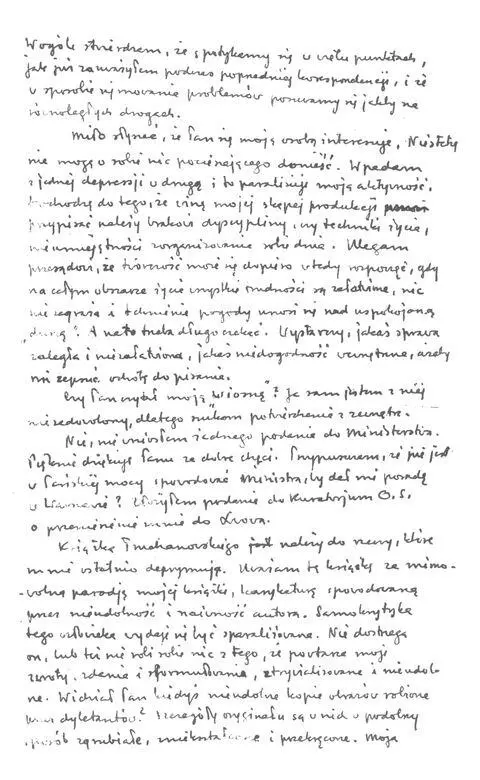 Wogóle stwierdzam, że spotykamy się w wielu punktach,
jak już zauważyłem podczas poprzedniej korespondencji, i że
w sposobie ujmowania problemów poruszamy się jakby na
równoległych drogach.
Miło słyszeć, że Pan się moją osobą interesuje. Niestety
nie mogę o sobie nic pocieszającego donieść. Wpadam
z jednej depresji w drugą i to paraliżuje moją aktywność.
Dochodzę do tego, że winę mojej skąpej produkcji
przypisać należy brakowi dyscypliny, czy techniki życia,
nieumiejętności zorganizowania sobie dnia. Ulegam
przesądowi, że twórczość może się dopiero wtedy rozpocząć, gdy
na całym obszarze życia wszystkie trudności są załatwione, nic
nie zagraża i tchnienie pogody unosi się nad uspokojoną
„duszą". A na to trzeba długo czekać. Wystarczy, jakaś sprawa
zaległa i niezałatwiona, jakaś niedogodność wewnętrzna, ażeby
mi zepsuć ochotę do pisania.
Czy Pan czytał moją „Wiosnę"? Ja sam jestem z niej
niezadowolony, dlatego szukam potwierdzenia z zewnątrz.
Nie, nie wniosłem żadnego podania do Ministerstwa.
Pięknie dziękuję Panu za dobre chęci. Przypuszczam, że nie jest
w Pańskiej mocy spowodować Ministra, by dał mi posadę
w Warszawie? Złożyłem podanie do Kuratorjum O.S.
o przeniesienie mnie do Lwowa.
Książka Truchanowskiego należy do rzeczy, które
mnie ostatnio deprymują. Uważam tę książkę za mimo-
-wolną parodję mojej książki, karykaturę spowodowaną
przez nieudolność i naiwność autora. Samokrytyka
tego człowieka wydaje się być sparaliżowana. Nie dostrzega
on, lub też nie robi sobie nic z tego, że powtarza moje
zwroty, zdania i sformułowania, strywializowane i nieudol-
ne. Widział Pan kiedyś nieudolne kopie obrazów robione
przez dyletantów? Szczegóły oryginału są w nich w podobny
sposób zgrubiałe, zniekształcone i przekręcone. Moja